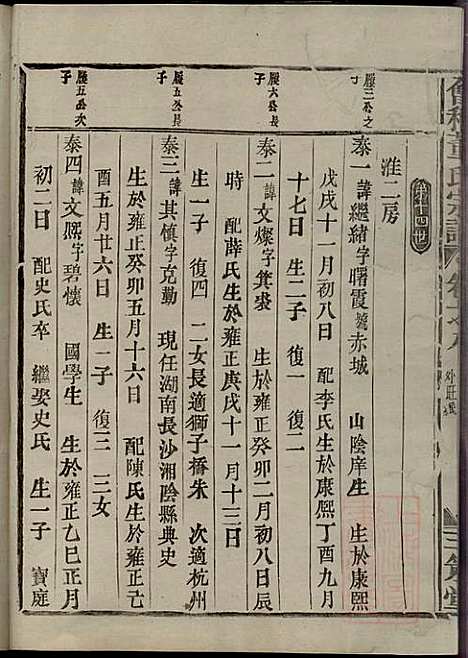 淮二房
履三公之子
泰一諱繼緒字曙霞號赤城 山陰庠生 生於康熙
戊戌十一月初八日 配李氏生於康熙丁酉九月
十七日 生二子 復一 復二
履六公長子
泰二諱文燦字箕裘 生於雍正癸卯二月初八日辰
時 配薛氏生於雍正庚戌十一月十三日
生一子 復四 二女長適獅子橋朱 次適杭州
履五公長子
泰三諱其慎字克勤 現任湖南長沙湘陰縣典史
生於雍正癸卯五月十六日 配陳氏生於雍正己
酉五月廿六日 生一子 復三 三女
履五公次子
泰四諱文熙字碧懷 國學生 生於雍正乙巳正月
初二日 配史氏卒 繼娶史氏 生一子 寶庭